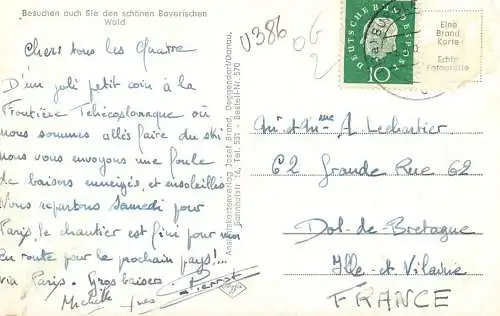 Besuchen auch Sie den schönen Bayerischen
Wald
Chers tous les Quatre
D'un joli petit coin à la
Frontière Tchécoslovaque où
nous sommes allés faire du ski
nous vous envoyons une foule
de baisers enneigés, et ensoleillés
Nous repartons Samedi pour
Paris, le chantier est fini pour moi
en route pour le prochain pays!...
via Paris. Gros baisers
Michelle Yves Pierrot
Ansichtskartenverlag Josef Brand, Deggendorf/Donau,
Bahnhofstr. 14, Tel. 531 - Bestell-Nr. 570
U386
OG
2
DEUTSCHE BUNDESPOST
10
Eine
Brand
Karte
Echte
Fotografie
Mr et Mme A Lechartier
62 Grande Rue 62
Dol-de-Bretagne
Ille-et-Vilaine
FRANCE